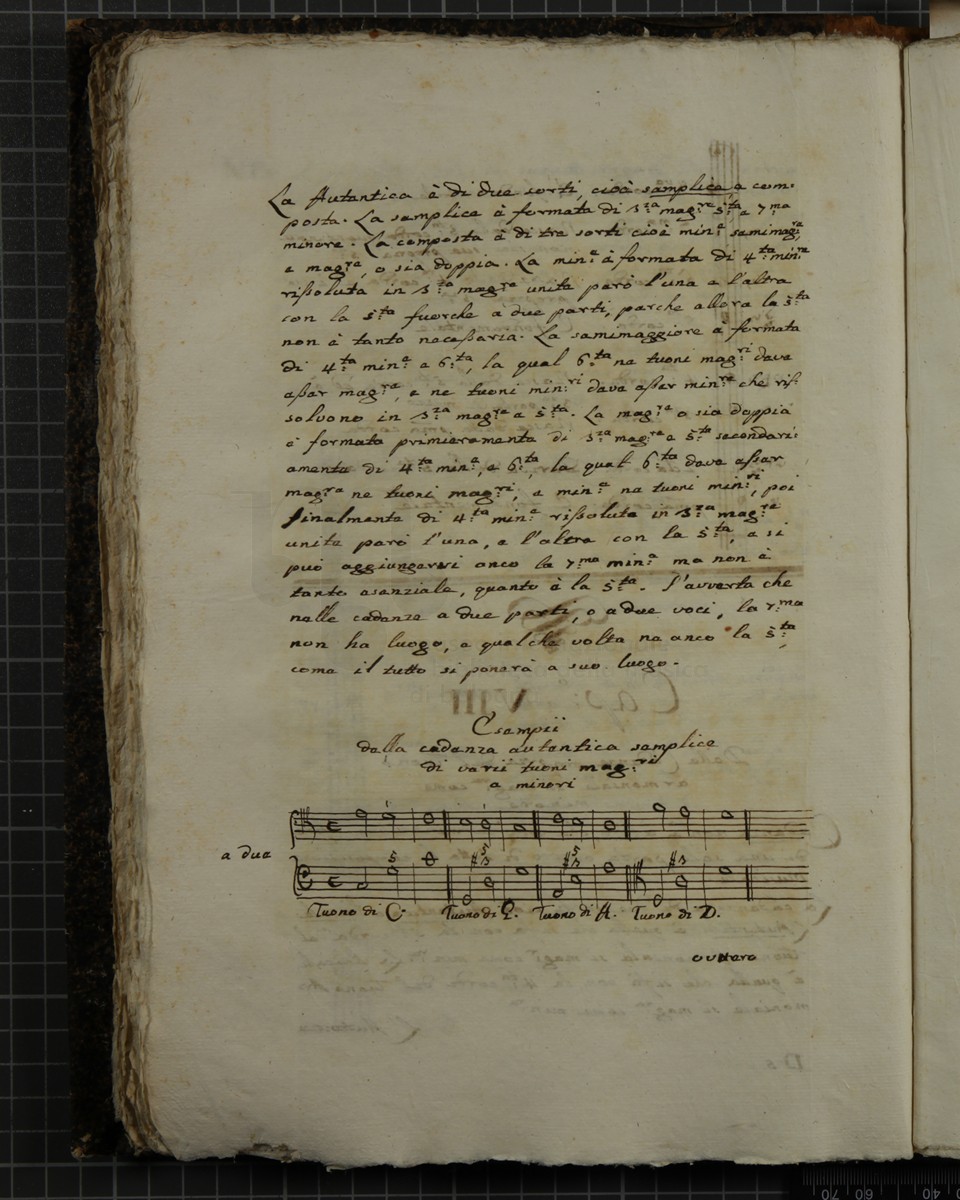 La Autantica è di due sorti, cioè semplice, e com:
posta. La semplice è formata di 3:za mag:re 5:ta e 7:ma
minore. La composta è di tre sorti cioè min:e semimag:re
e mag:re, o sia doppia. La min:e è formata di 4:ta min:re
rissoluta in 3:za mag:re unite però l'una e l'altra
con la 5:ta fuorche a due parti, perche allora la 5:ta
non è tanto necessaria. La semimaggiore è formata
di 4:ta min:e e 6:ta, la qual 6:ta ne tuoni mag:ri deve
esser mag:re, e ne tuoni min:ri deve esser min:re che ris:
solvono in 3:za mag:re e 5:ta. La mag:re o sia doppia
è formata primieramente di 3:za mag:re e 5:ta secondari:
amente di 4:ta min:e, e 6:ta, la qual 6:ta deve esser
mag:re ne tuoni mag:ri, e min:e ne tuoni min:ri, poi
finalmente di 4:ta min:e rissoluta in 3:za mag:re
unite però l'una, e l'altra con la 5:ta, e si
può aggiungervi anco la 7:ma min:e ma non è
tanto esenziale, quanto è la 5:ta. S'avverta che
nelle cadenze a due parti, o a due voci, la 7:ma
non ha luogo, e qualche volta ne anco la 5:ta,
come il tutto si ponerà a suo luogo.
Esempii
della cadenza autentica semplice
di varii tuoni mag:ri
e minori
a due
5 8 #3 5 #3 5 #3
Tuono di C. Tuono di E. Tuono di A. Tuono di D.
ouvero
Cap: VIII